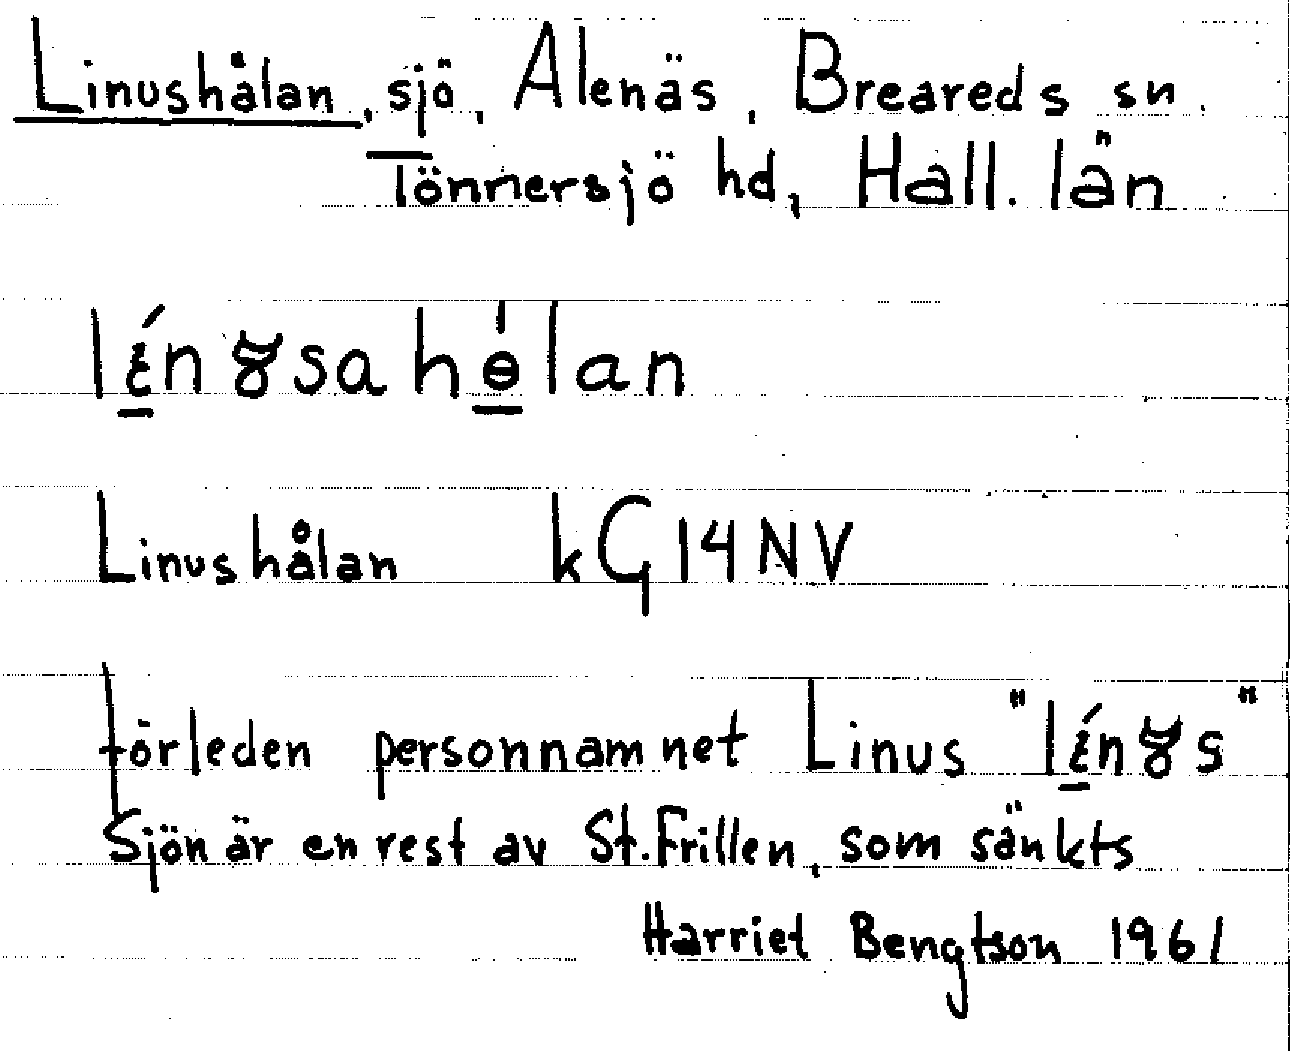 Linushålan, sjö, Alenäs, Breareds sn.
Tönnersjö hd, Hall. län
Linushålan kG14NV
förleden personnamnet Linus
Sjön är en rest av St. Frillen, som sänkts
Harriet Bengtson 1961